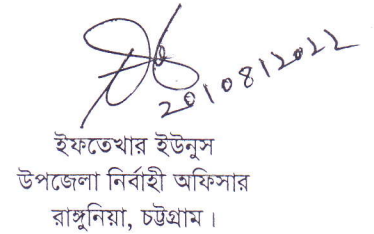 20/08/2022
ইফতেখার ইউনুস
উপজেলা নির্বাহী অফিসার
রাঙ্গুনিয়া, চট্টগ্রাম।